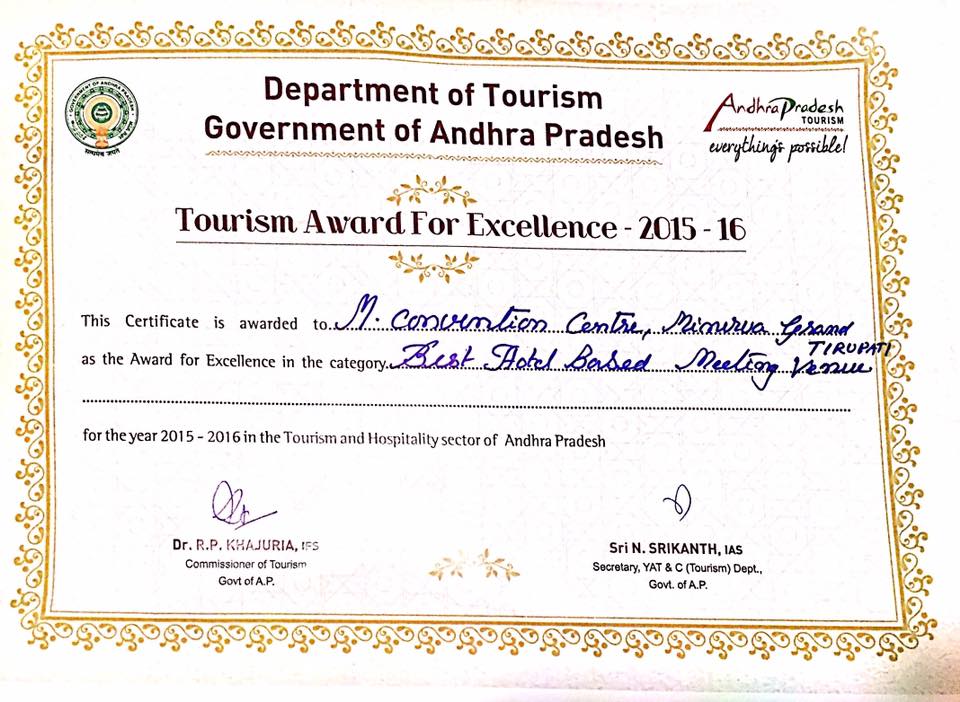 Department of Tourism
Government of Andhra Pradesh
GOVERNMENT OF ANDHRA PRADESH
सत्यमेव जयते
Andhra Pradesh
TOURISM
everything's possible!
Tourism Award For Excellence - 2015 - 16
This Certificate is awarded to M. Convention Centre, Minerva Grand
TIRUPATI
as the Award for Excellence in the category Best Hotel Based Meeting Venue
for the year 2015 - 2016 in the Tourism and Hospitality sector of Andhra Pradesh
Dr. R.P. KHAJURIA, IFS
Commissioner of Tourism
Govt of A.P.
Sri N. SRIKANTH, IAS
Secretary, YAT & C (Tourism) Dept.,
Govt. of A.P.